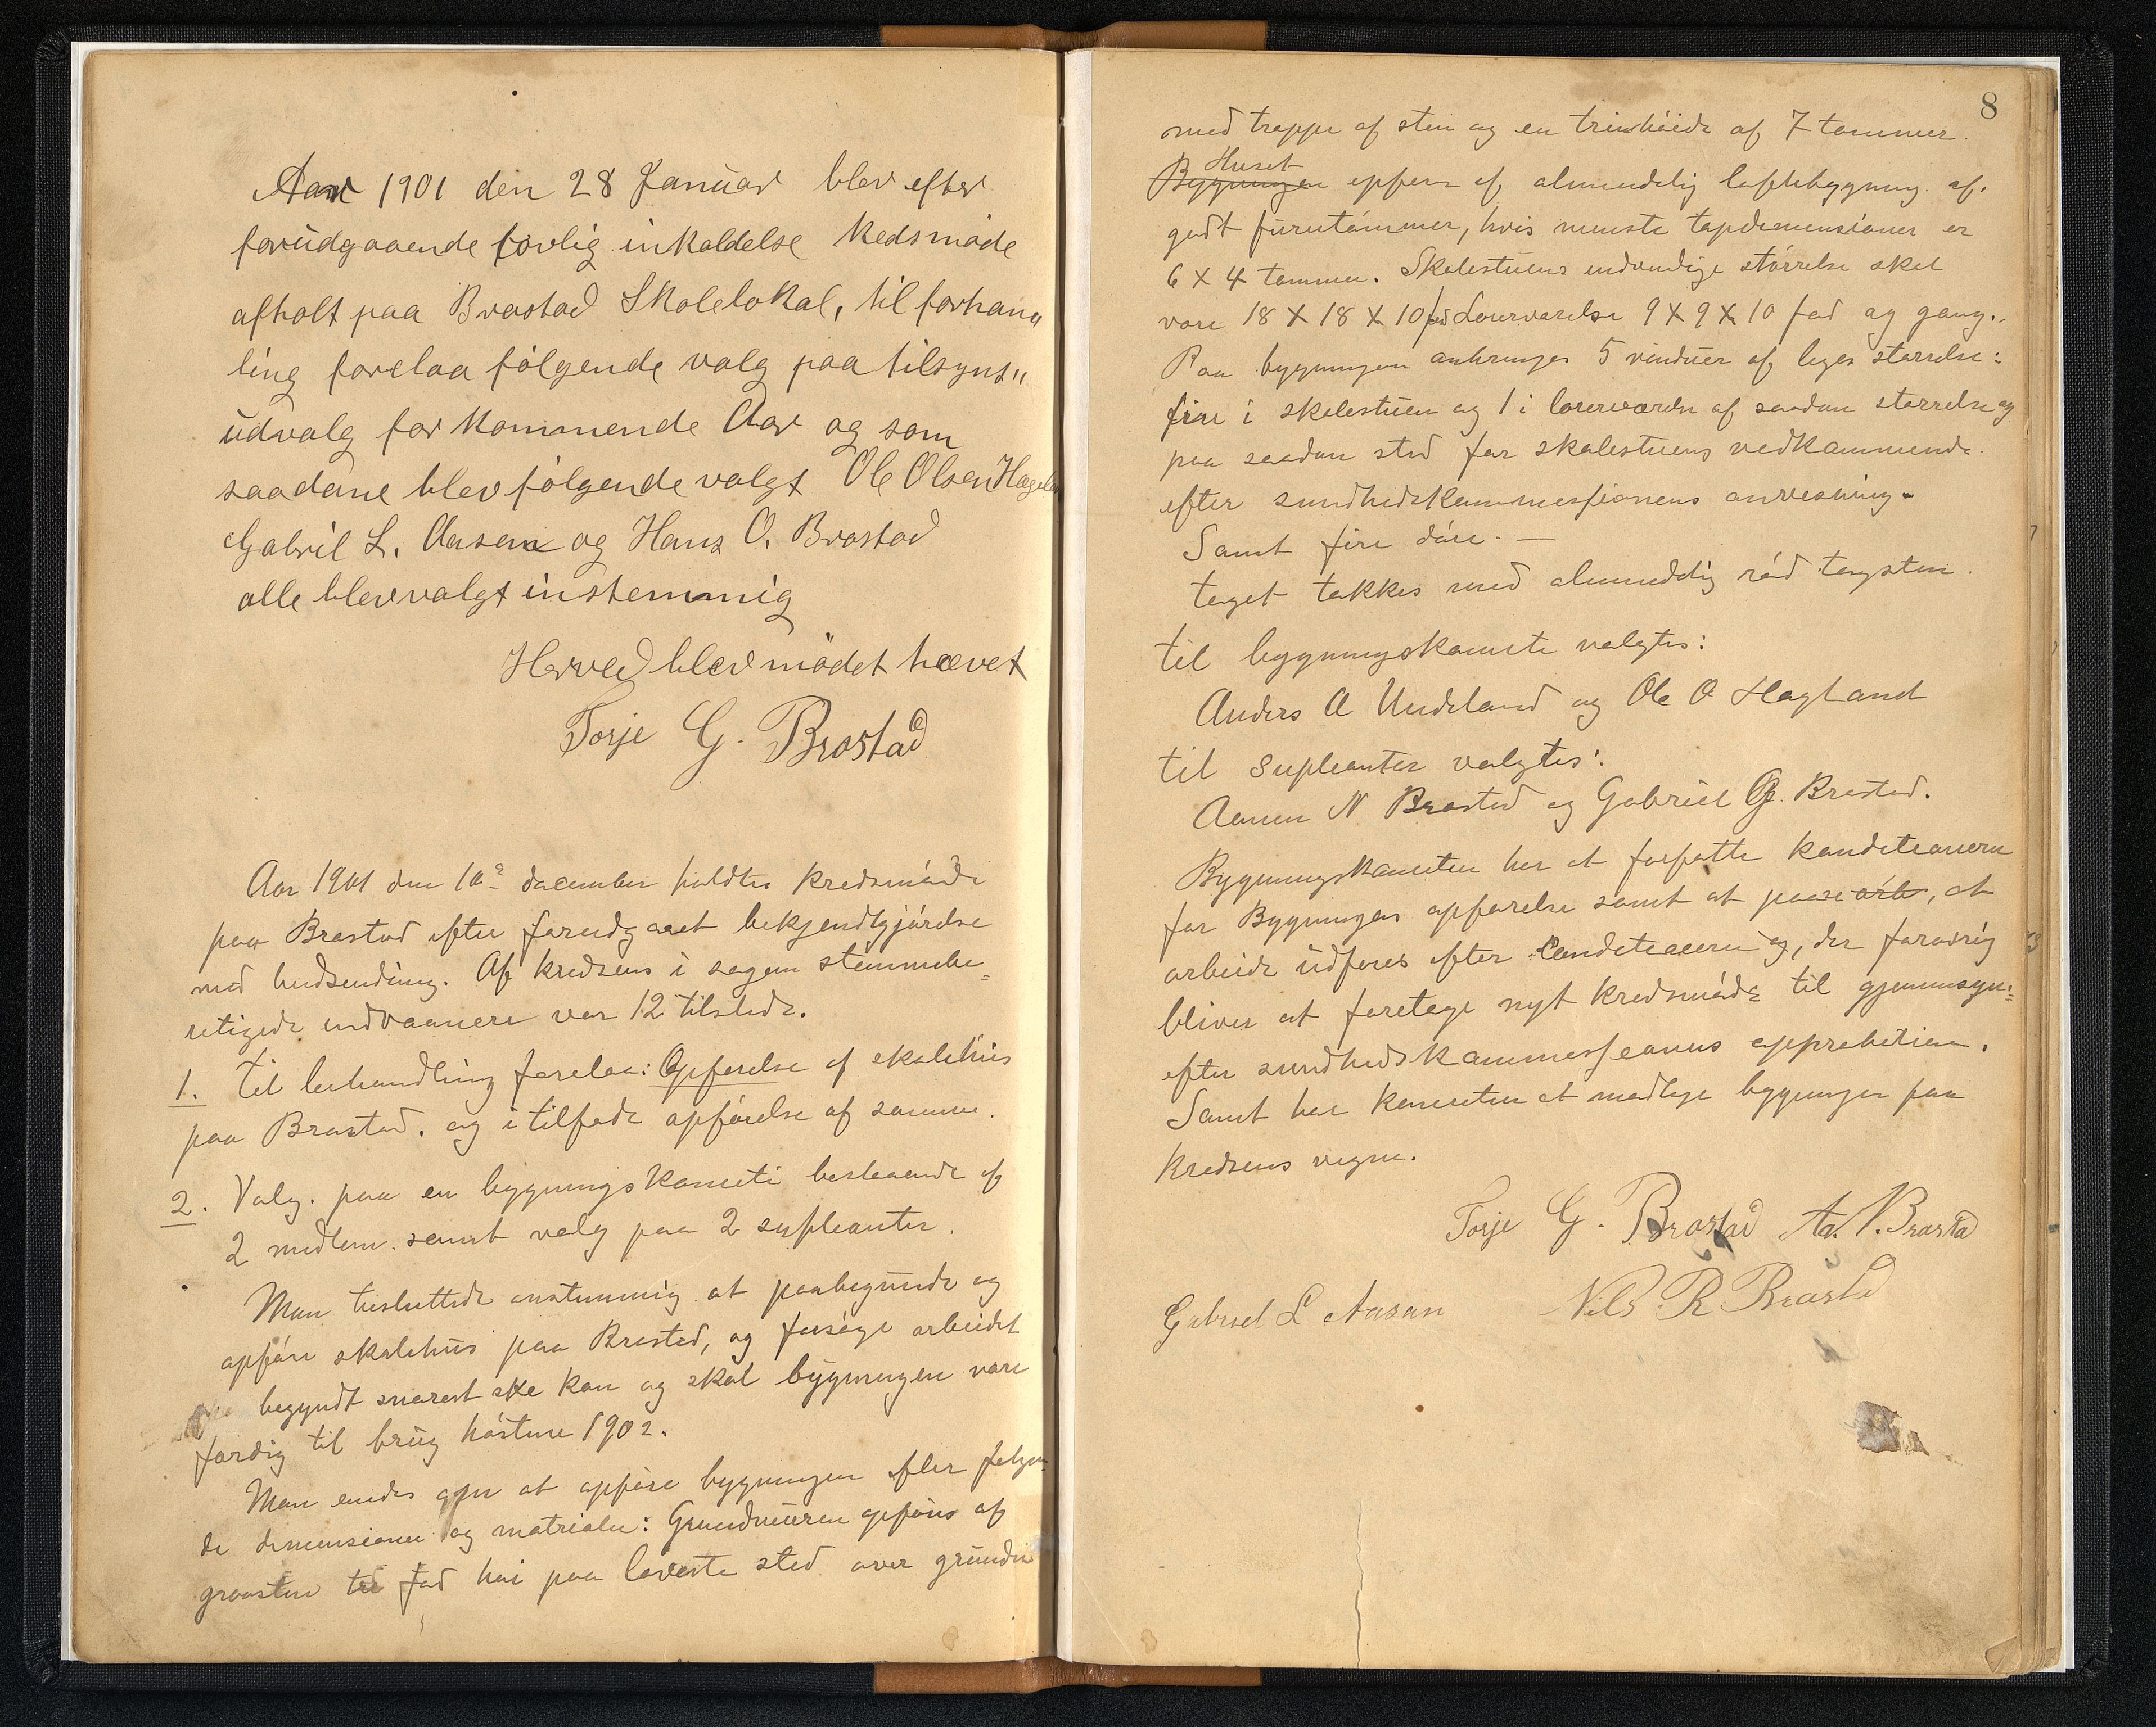 Aar 1901 den 28 Januar blev efter
forudgaaende lovlig inkaldelse Kedsmøde
afholt paa Brastad Skolelokal, til forhand
ling forelaa følgende valg paa tilsyns„
udvalg for Kommende Aar og som
saadane blev følgende valgt Ole Olsen Hagelan
Gabril L. Aasen og Hans O. Brastad
alle blev valgt instemmig
Herved blev mødet hævet
Torje G. Brastad
Aar 1901 den 10de december holdtes Kredsmøde
paa Brastad efter forudgaaet bekjendtgjørelse
med budsending. Af kredsens i sagen stemmebe=
retigede indvaanere var 12 tilstede.
1. til behandling forelaa: Opførelse af skolehus
paa Brastad. og i tilfælde opførelse af samme.
2. Valg. paa en bygningskomite bestaaende af
2 medlem. samt valg paa 2 supleanter.
Man besluttede enstemmig at paabegynde og
opføre skolehus paa Brastad, og forsøge arbeidet
begyndt snarest ske kan og skal bygningen være
færdig til brug høsten 1902.
Man enedes om at opføre bygningen efter følgen
de dimensioner og matrialer: Grundmuren opføres af
graasten to fod høi paa laveste sted over grunden
8
med trappe af sten og en trinhøide af 7 tommer.
Huset
Bygningen opføres af almindelig laftebygning. af.
godt furutømmer, hvis minste topdimensioner er
6 X 4 tommer. Skolestuens indvendige størrelse skal
være 18 X 18 X 10 fod Lærerværelse 9 X 9 X 10 fod og gang..
Paa bygningen anbringes 5 vinduer af liges størrelse:
fire i skolestuen og 1 i lærerværelse af saadan størrelse og
paa saadan sted for skolestuens vedkammende.
efter sundhedskommessionens anvesning.
Samt fire døre. —
taget tækkes med almindelig rød tagsten.
til bygningskomite valgtes:
Anders A Undeland og Ole O Hagland
til supleanter valgtes:
Aanen N Brastad og Gabriel G. Brastad.
Bygningskomiten har at forfatte kondetionern
for Bygningens opførelse samt at paase arb, at
arbeide udføres efter Condetionern og, der forøvrig
bliver at foretage nyt kredsmøde til gjennemsyn=
efter sundhedskommessionens approbation.
Samt har komiten at modtage bygningen paa
Kredsens vegne.
Torje G. Brastad Aa. N. Brastad
Gabriel L Aasen Nils R Brastad